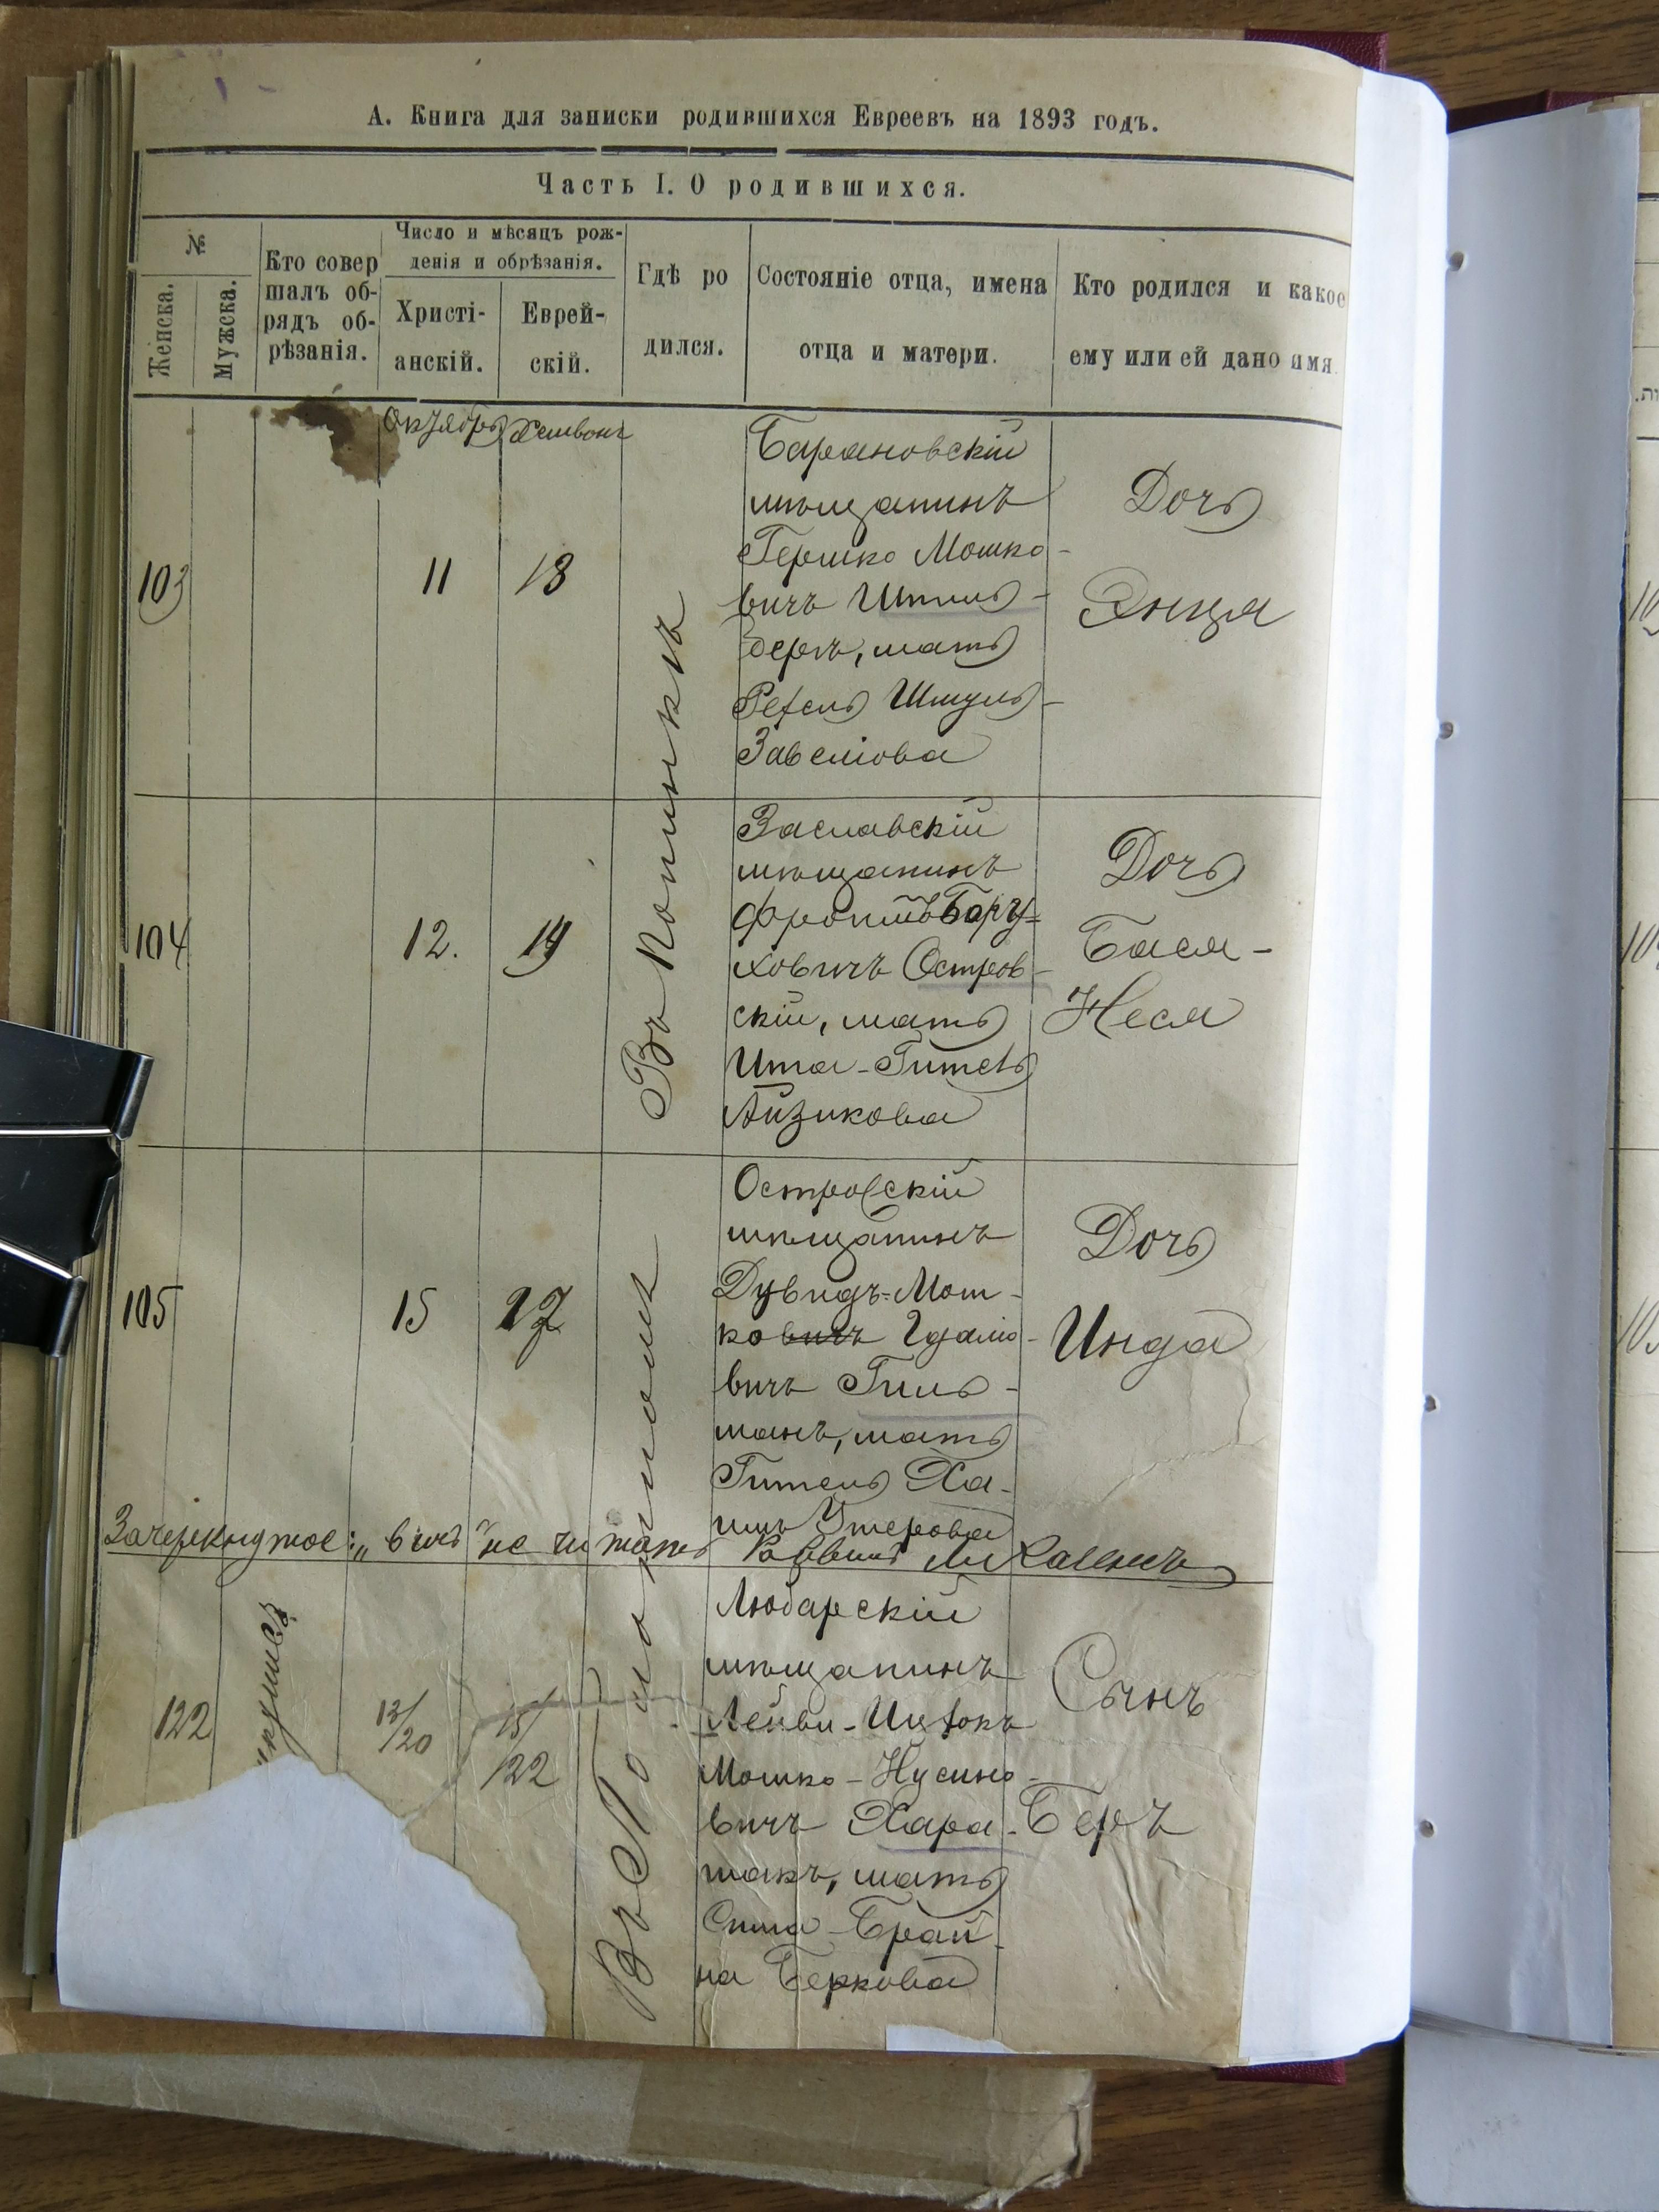 А. Книга для записки родившихся Евреевъ на 1893 годъ.
Часть I. О родившихся.
№
Женска.
Мужска.
Кто совер
шалъ об-
рядъ об-
рѣзанія.
Число и мѣсяцъ рож-
денія и обрѣзанія.
Христі-
анскій.
Еврей-
скій.
Гдѣ ро
дился.
Состояніе отца, имена
отца и матери.
Кто родился и какое
ему или ей дано имя.
Октябрь
Хешвонъ
103
11
13
Барановскій
мѣщанинъ
Гершко Мошко-
вичъ
беръ, мать
Рейзя Шмуль-
Завелiова
Дочь
Энця
104
12.
19
Заславскій
мѣщанинъ
Фроимъ Бору=
ховичъ Остров-
скій, мать
Ита-Гитель
Айзикова
Дочь
Бася-
Неся
105
15
17
Островскій
мѣщанинъ
Дувидъ=Мош-
ковичъ Гдалiо-
вичъ Гиль-
манъ, мать
Гитель Ха-
имъ Ушерова
Дочь
Инда
Зачеркнутое: „вичъ" не читать Раввинъ
122
13/20
15/22
Любарскій
мѣщанинъ
Лейви-Ицхокъ
Мошко-Нусино-
вичъ Хара-
макъ, мать
Сима-Брай-
на Беркова
Сынъ
Беръ